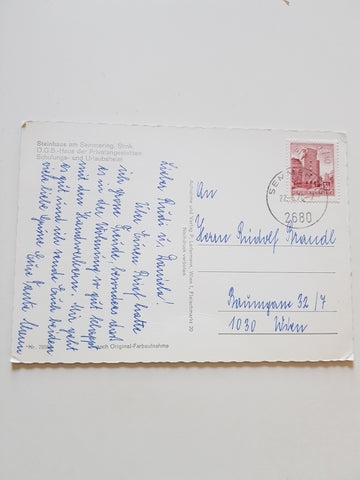 Steinhaus am Semmering, Stmk.
Ö.G.B.-Haus der Privatangestellten
Schulungs- und Urlaubsheim
Lieber Rudi u. Daniela!
Über Euren Brief hatte
ich große Freude, besonders daß
es in der Wohnung so gut klappt
mit den Handwerkern. Mir geht
es gut und ich sende Euch beiden
viele liebe Grüße Eure
Nr.
nach Original-Farbaufnahme
Aufnahme und Verlag P. Ledermann, Wien I, Fleischmarkt 20
Nachdruck verboten
2680
An
Herrn Rudolf Brandl
Baumgasse 32/7
1030 Wien